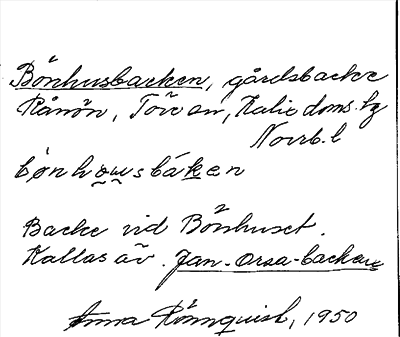 Bönhusbacken, gårdsbacke
Rånön, Töre sn, Kalix doms. hg
Norrb. l
bönhousbáken
Backe vid Bönhuset.
Kallas äv. Jan-Orsa-backen
Anna Rönnquist, 1950